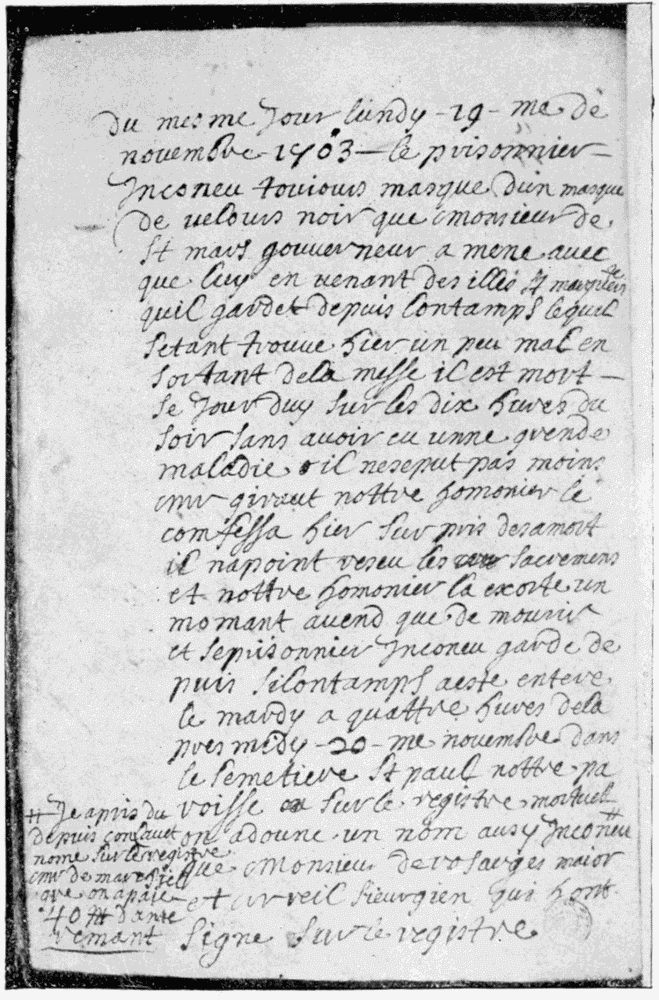 du mesme jour lundy -19- me de
novembre 1703 – le prisonnier –
Inconeu toujours masque d'un masque
de velours noir que monsieur de
St mars gouverneur a mene avec
que luy en venant des illes Ste marguerite
quil gardet depuis lontamps lequel
setant trouve hier un peu mal en
sortant de la messe il est mort –
se jour duy sur les dix hures du
soir sans avoir eu unne grende
maladie il neseput pas moins
mr giraut nottre homonier le
comfessa hier surpris desamort
il napoint reseu les sacremens
et nottre homonier la exorte un
momant avend que de mourir
et seprisonnier Inconeu garde de
puis silontamps aeste entere
le mardy a quattre hures dela
pres midy -20- me novembre dans
le semetiere St paul nottre pa
roisse sur le registre mortuel
on a donne un nom ausy Inconeu #
que Monsieur de rosarges maior
et arreil sieurgien qui hont
signe sur le registre
# Je apris du
depuis con lavet
nome sur le registre
mr de marchiel
que on a paie
40 # dante
remant